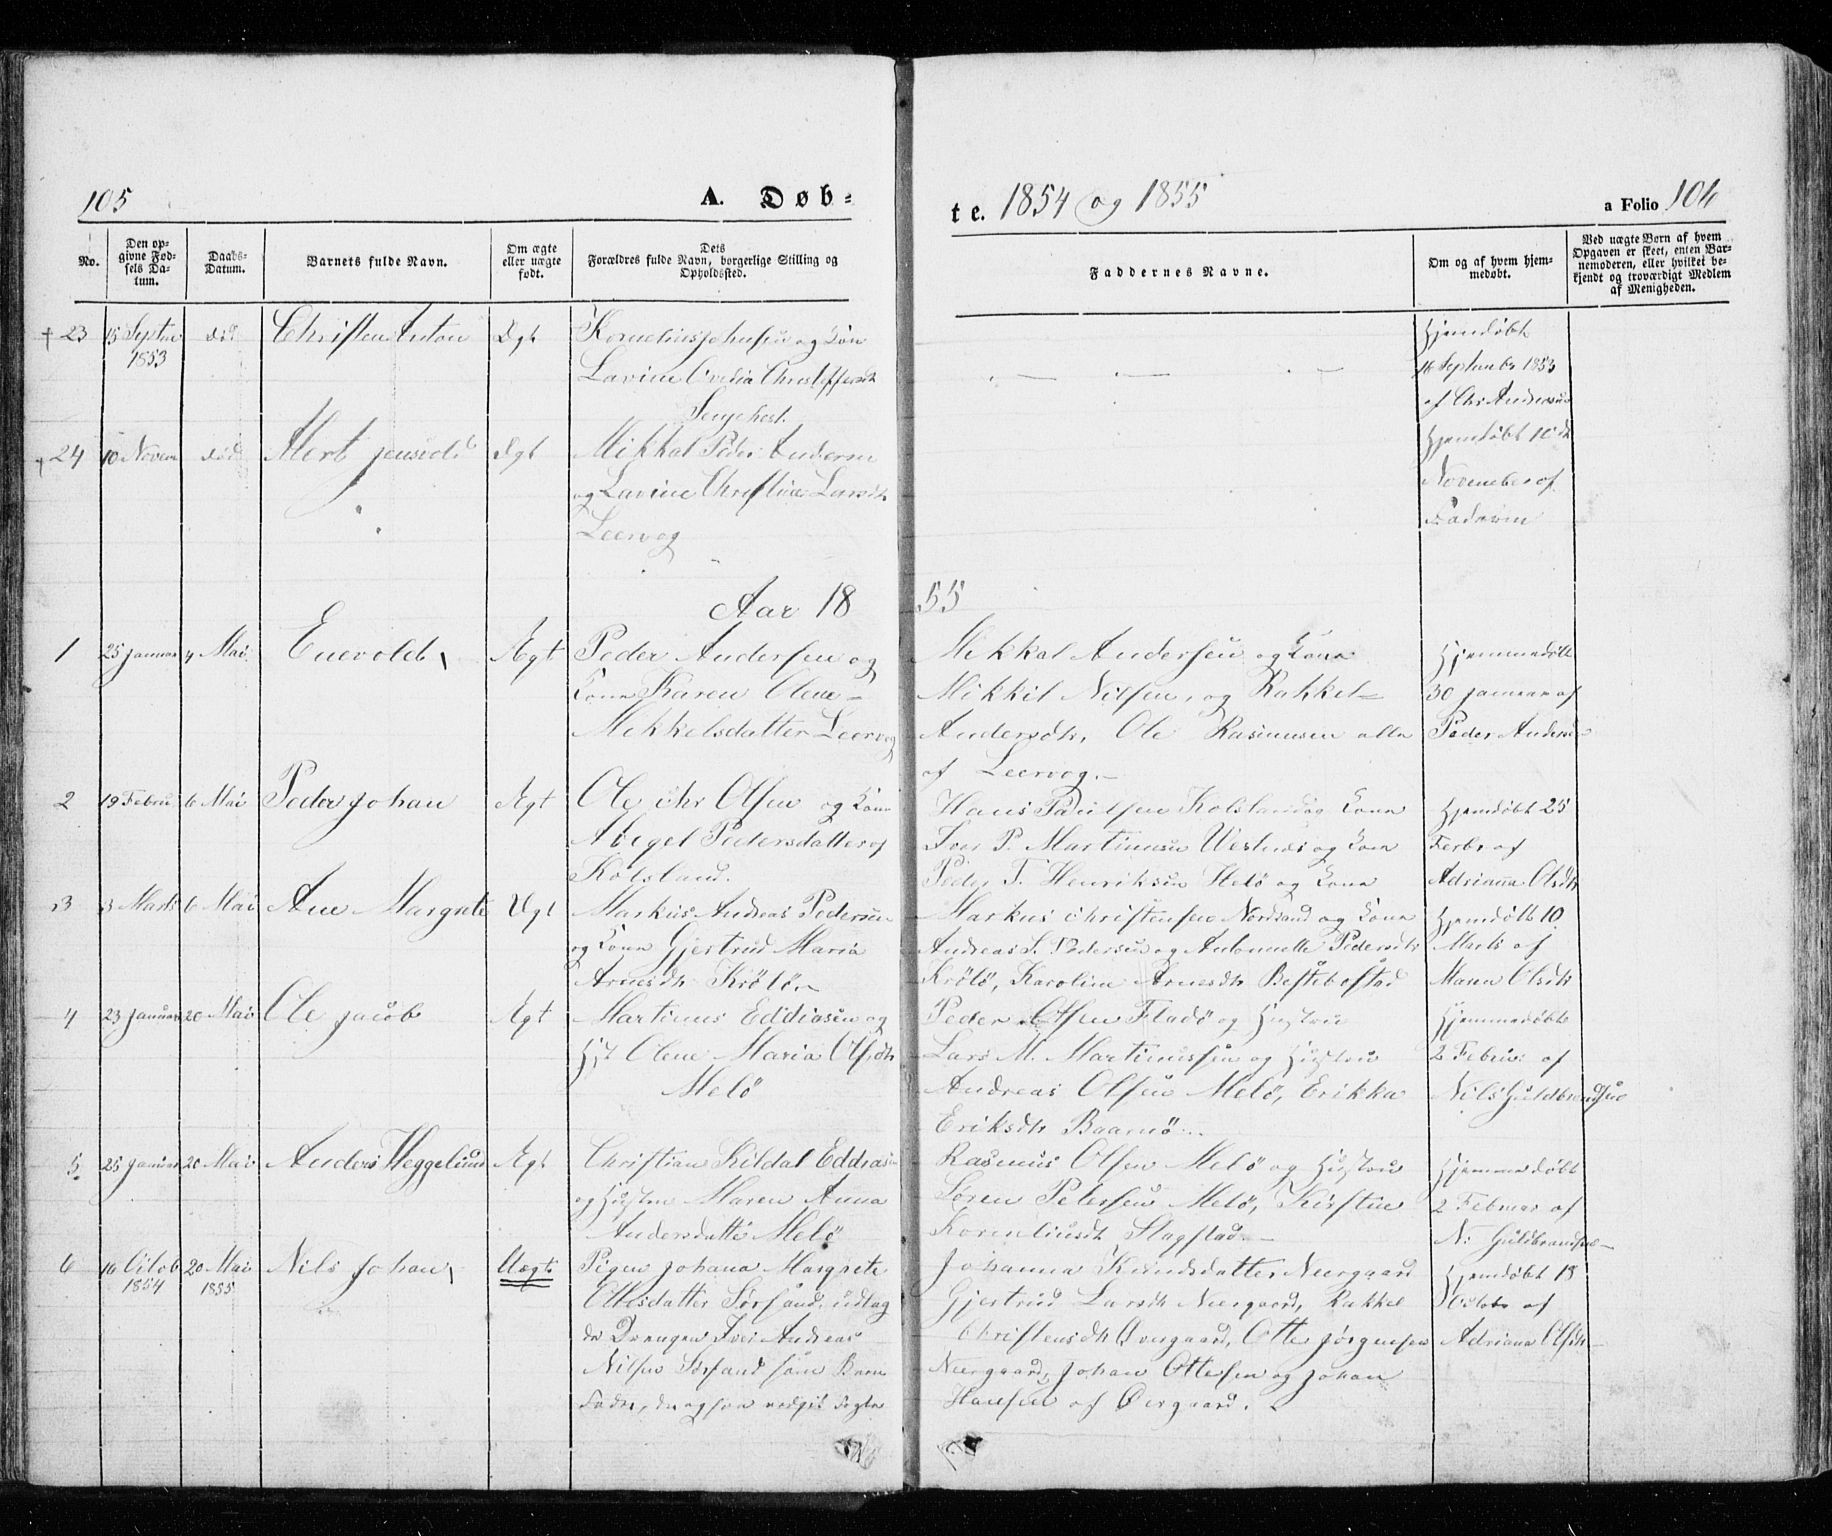 105
A. Døb-
te. 1854 og 1855
a Folio 106
No.
Den op-
givne Fød-
sels Da-
tum.
Daabs-
Datum.
Barnets fulde Navn.
Om ægte
eller uægte
født.
Dets
Forældres fulde Navn, borgerlige Stilling og
Opholdssted.
Faddernes Navne.
Om og af hvem hjem-
medøbt.
Ved uægte Børn af hvem
Opgaven er skeet, enten Bar-
nemoderen, eller hvilket be-
kjendt og troværdigt Medlem
af Menigheden.
+ 23
15 Septbr
1853
død
Christen Anton
Ægt
Kornelius Johnsen og Kone
Lavine Christoffersdt
Hjemdøbt
16 September 1853
af Chr Andersen
+ 24
10 Novem
død
Ægt
Mikkal Peder Andersen
og Lavine Christine Larsdt
Leervog
Hjemdøbt 10de
November af
Faderen
Aar 1855
1
25 Januar
4 Mai
Enevold
Ægt
Peder Andersen og
Kone Karen Olene
Mikkelsdatter Leervog
Mikkal Andersen og Kone
Mikkil Nilsen, og Rakkel
Andersdtr, Ole Rasmusen alle
af Leervog.
Hjemmedøbt
30 Januar af
Peder Anders
2
19 Febru
6 Mai
Peder Johan
Ægt
Ole Chr Olsen og Kone
Abegel Pedersdatter af
Kolsland.
Hans Paulsen Kolsland og Kone
Iver P. Martinusen og Kone
Peder T. Henriksen Helø og Kone
Hjemdøbt 25
Febr af
Adrianna Olsdtr
3
3 Marts
6 Mai
Ane Margrete
Ægt
Markus Andreas Pedersen
og Kone Gjertrud Maria
Arnesdtr Krølø
Markus Christensen Nordsand og Kone
Andreas S. Pedersen og Antonette Pedersdtr
Krølø, Karoline Arnesdtr
Hjemdøbt 10
Marts af
Maren Olsdtr
4
23 Januar
20 Mai
Ole Jacob
Ægt
Martinus Eddiasen og
Hst Olene Maria Olsdtr
Melø
Peder Olsen Fladø og Hustru
Lars M. Martinussen og Hustru
Andreas Olsen Melø, Erikka
Eriksdtr Baarnø
Hjemmedøbt
2 Febru af
Nils Guldbrandsen
5
25 Januar
20 Mai
Anders Heggelund
Ægt
Christian Kildal Eddiasen
og Hustru Maren Anna
Andersdatter Melø
Rasmus Olsen Melø og Hustru
Søren Petersen Melø, Kirstine
Korneliusdt Slagstad
Hjemmedøbt
2 Februar af
N. Guldbrandsen
6
16 Octob
1854
20 Mai
1855
Nils Johan
Uægte
Pigen Johana Margrete
Ottesdatter Sørsand, udlag
de Drengen Iver Andreas
Nilsen Sørsand som Barne
Fader, der ogsaa vedgik Sagten
Johanna Knudsdatter Neergaard
Gjertrud Larsdtr Neergaard, Rakkel
Christensdtr Øvergaard, Otte Jørgensen
Neergaard, Johan Ottesen og Johan
Hansen af Øvergaard.
Hjemdøbt 18
Octobr af
Adriana Olsdtr